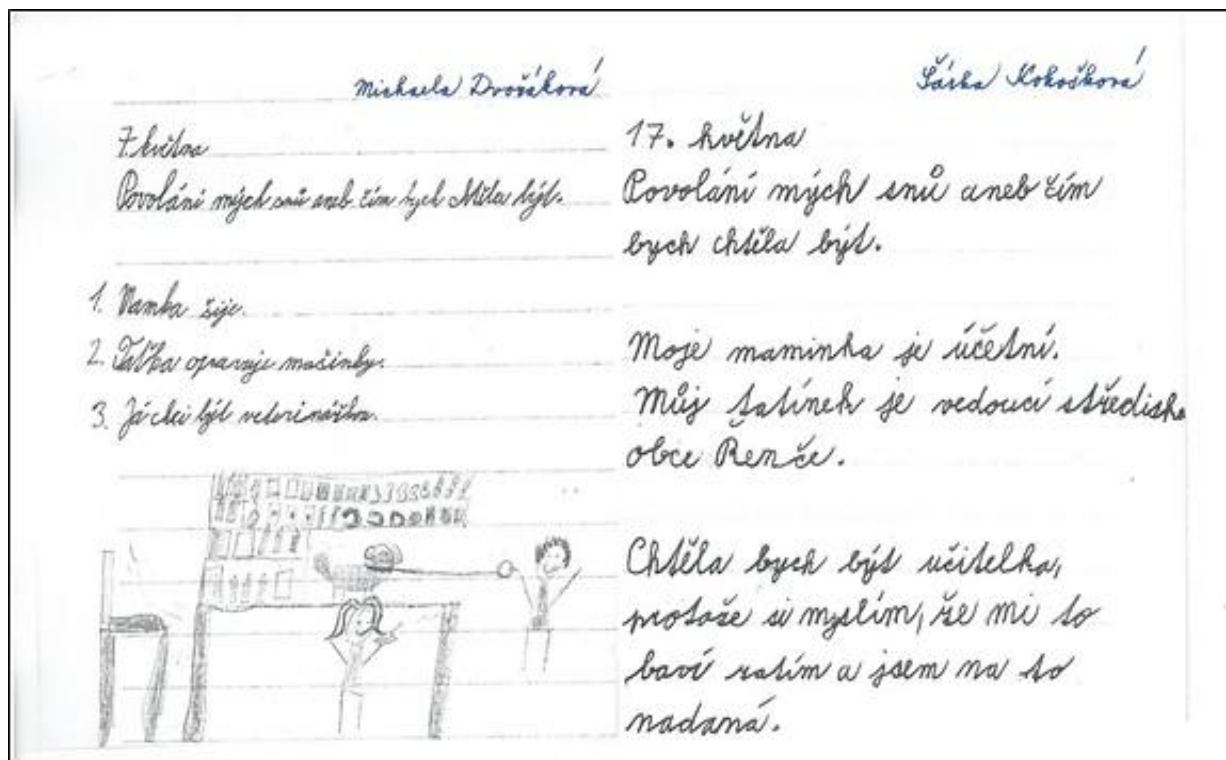 Michaela Dvořáková
7. května
Povolání mých snů aneb čím bych chtěla být.
1. Mamka šije.
2. Taťka opravuje mašinky.
3. Já chci být veterinářka.
Šárka Kokošková
17. května
Povolání mých snů aneb čím
bych chtěla být.
Moje maminka je účetní.
Můj tatínek je vedoucí střediska
obce Řenče.
Chtěla bych být učitelka,
protože si myslím, že mi to
baví zatím a jsem na to
nadaná.